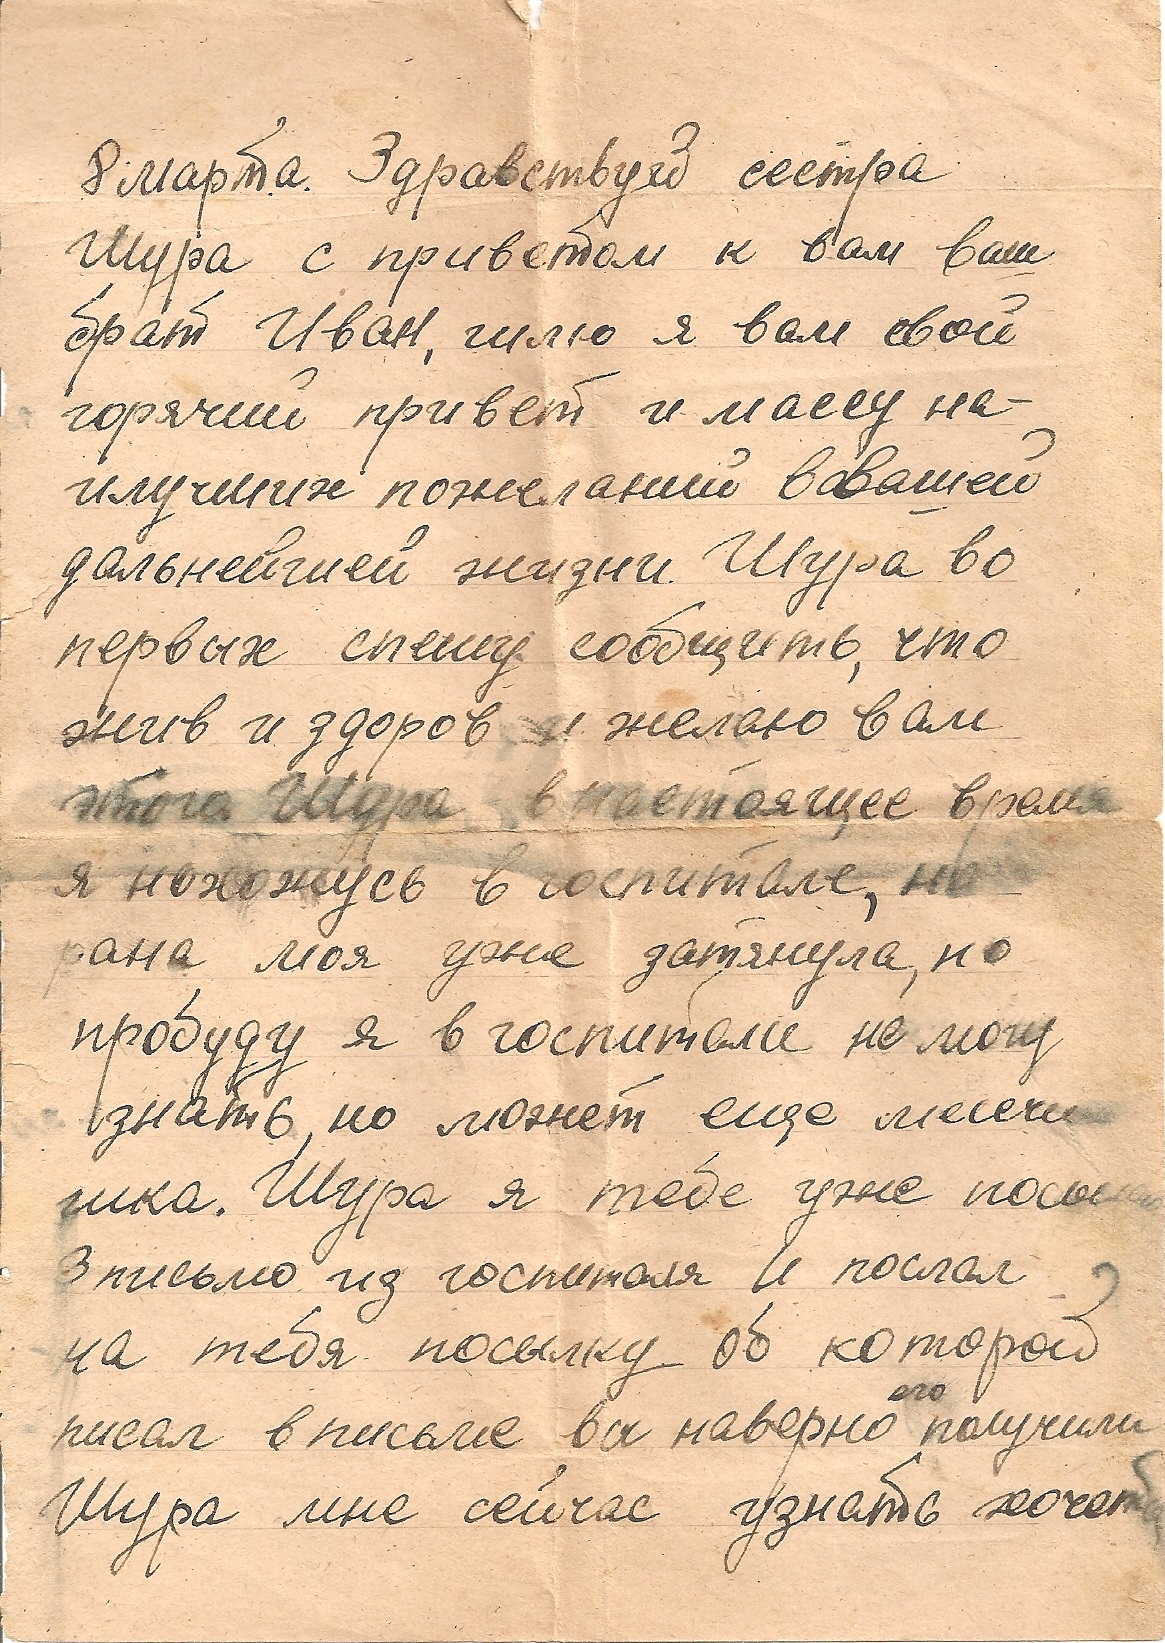 8 марта. Здравствуй сестра
Шура с приветом к вам ваш
брат Иван, шлю я вам свой
горячий привет и массу на-
илучших пожеланий в вашей
дальнейшей жизни. Шура во
первых спешу сообщить, что
жив и здоров и желаю вам
этого Шура в настоящее время
я нохожусь в госпитале, но
рана моя уже затянула, но
пробуду я в госпитали не могу
знать, но может еще
шка. Шура я тебе уже
3 письмо из госпиталя и послал
на тебя посылку об которой
писал в письме вы наверно его получили
Шура мне сейчас узнать